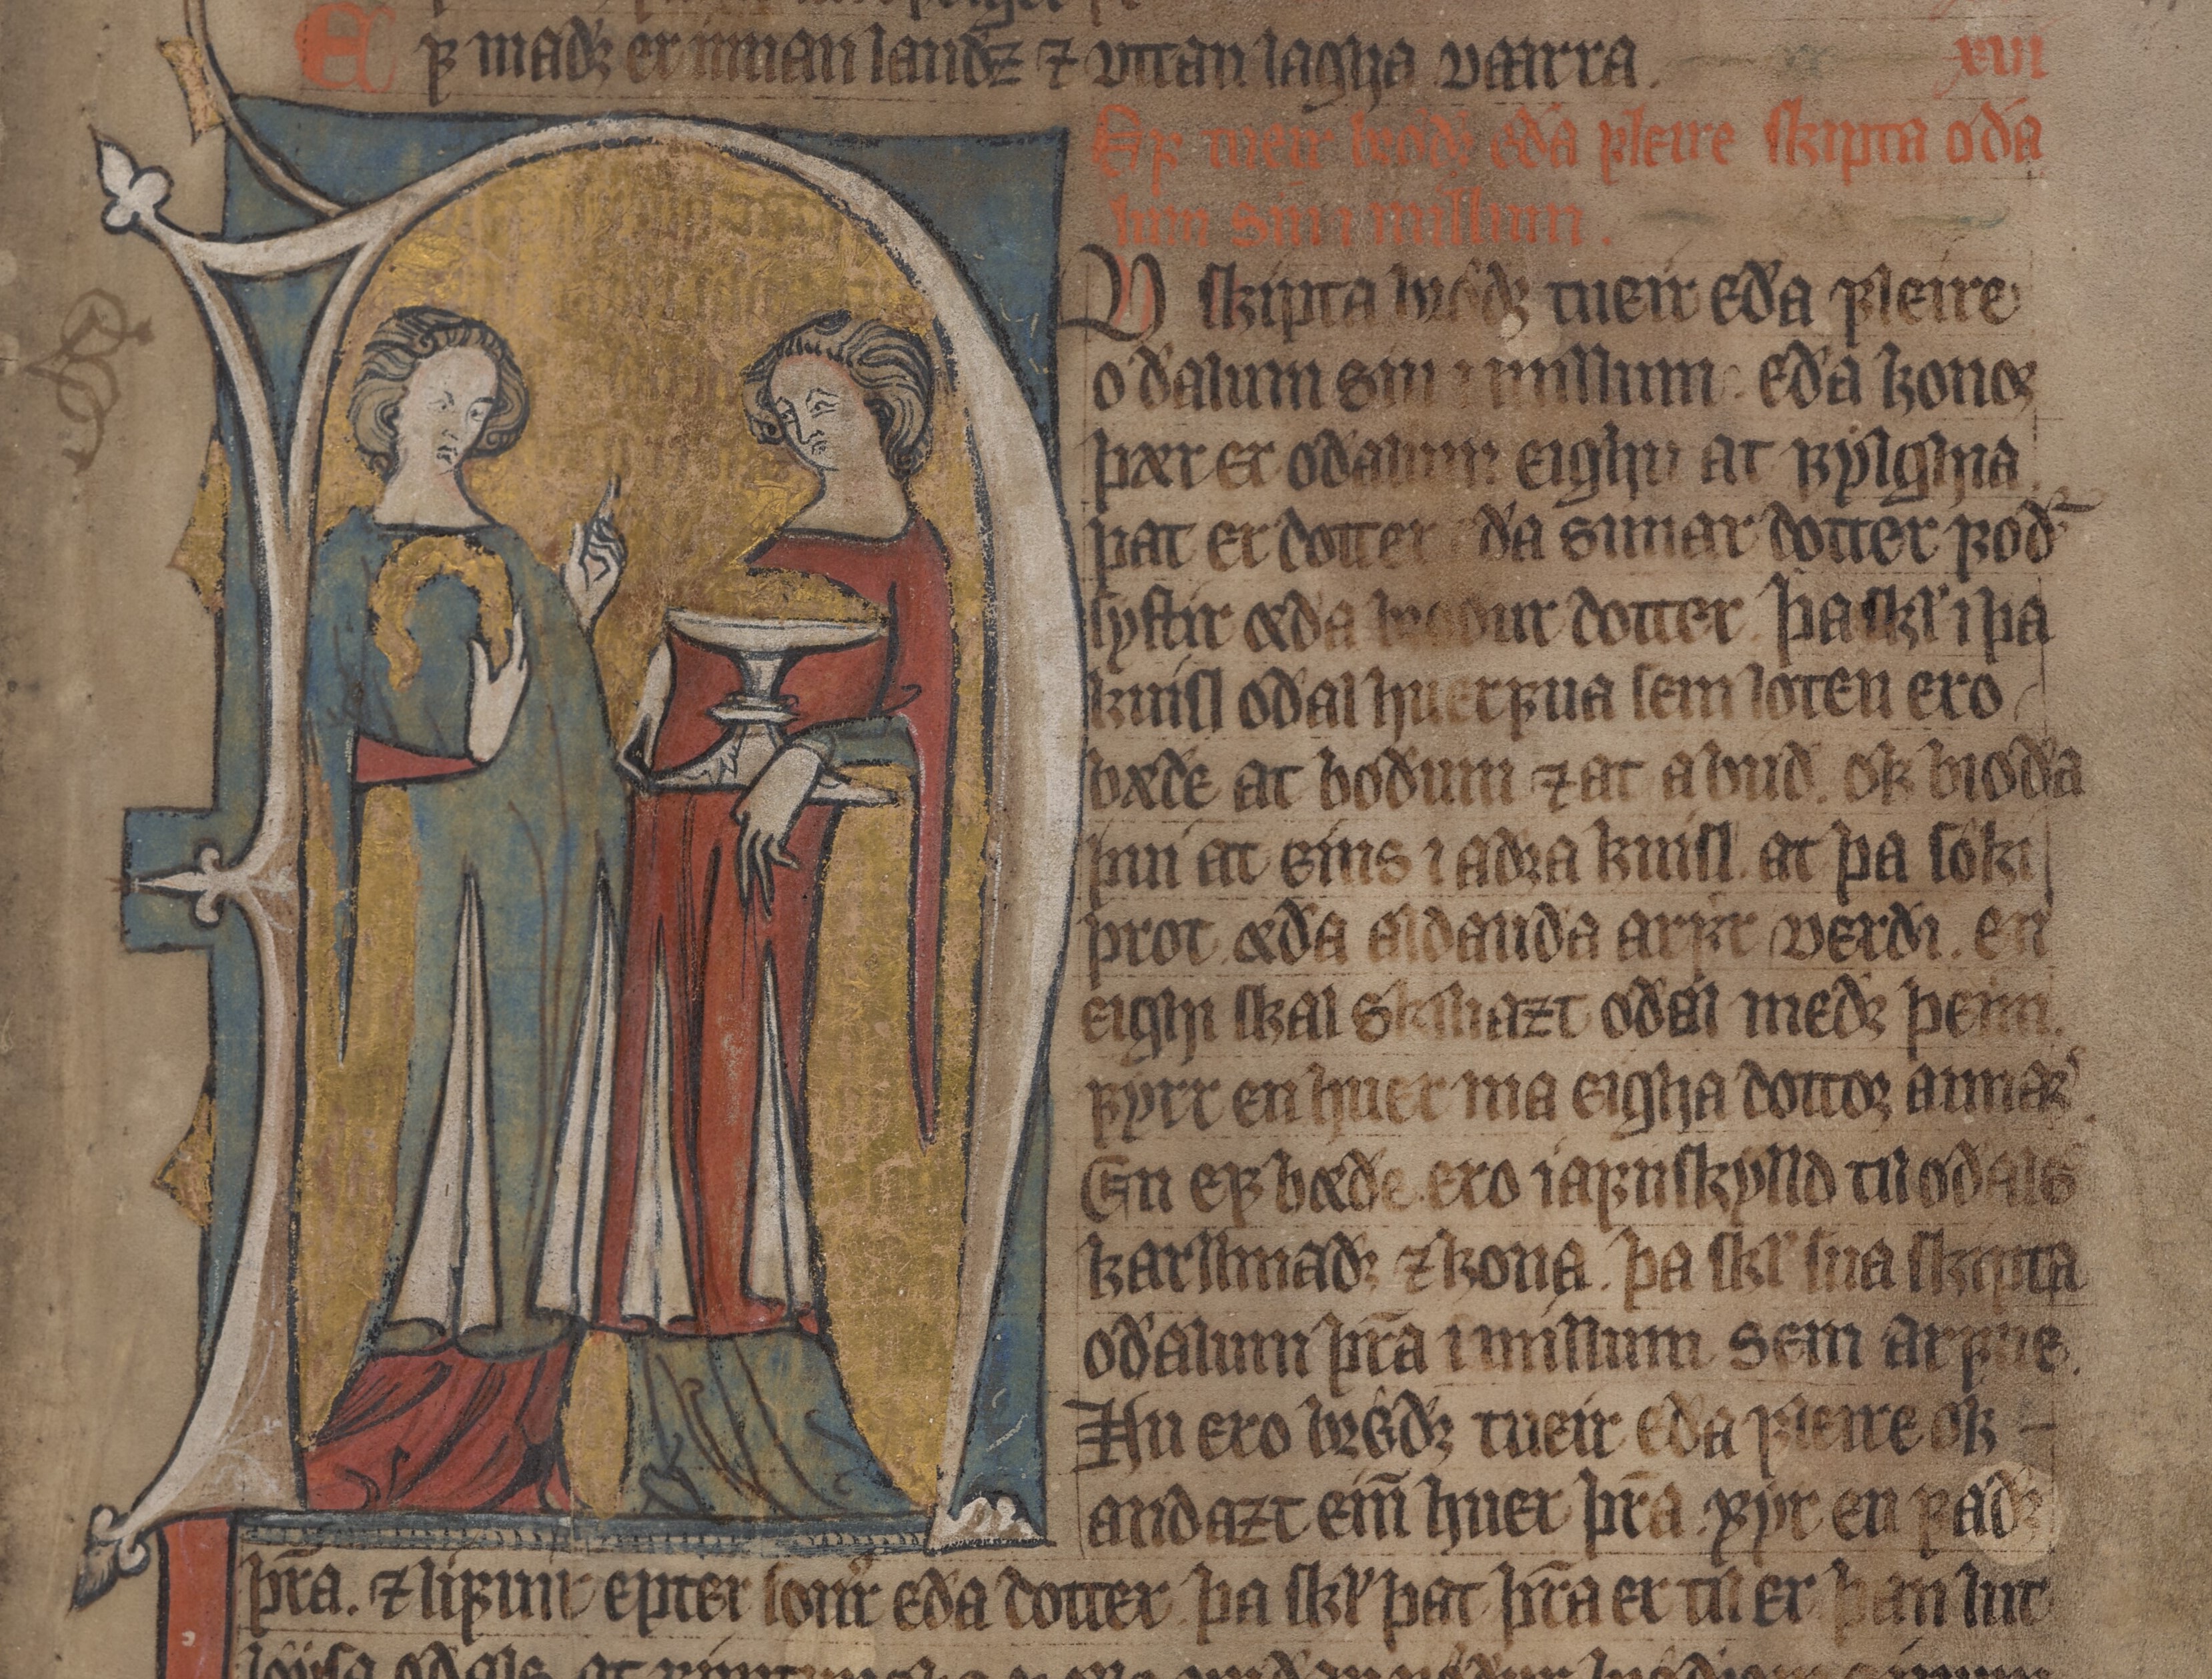 Ef maðꝛ er innan landz ⁊ vttan lagha vaarra. xvi
Ef tueir brø̂ðꝛ eða fleire skipta oða
lum sin i millium.
NU skipta brø̂ðꝛ tueir eða fleire
oðalum sin i millium. eða konoꝛ
þær er oðalum eighu at fylghia
þat er dotter eða sunar dotter foð᷎
systir æða broður dotter. Þa skl᷎ i þa
kuisl oðal huerfua sem loten ero
bæðe at boðum ⁊ at a buð. ok bioða
þui at eins i aðꝛa kuisl. at þa søki
þrot æða aldauða arfir verði. en
eighi skal skiliazt oðall meðꝛ þeim.
fyrr en huer ma eigha dottoꝛ annar᷎s.
En ef bæðe ero iafnskylld til oðals
karllmaðꝛ ⁊ kona. þa skl᷎ sua skipta
oðalum þr̅a i millium sem arfue.
Nu ero brø̂ðꝛ tueir eða fleire ok
andazt ein̅ huer þr̅a. fyr en faðꝛ
þr̅a. ⁊ lifuir epter sonr᷎ eða dotter. þa skl᷎ þat þr̅a er til er þan lut
løysa oðals at